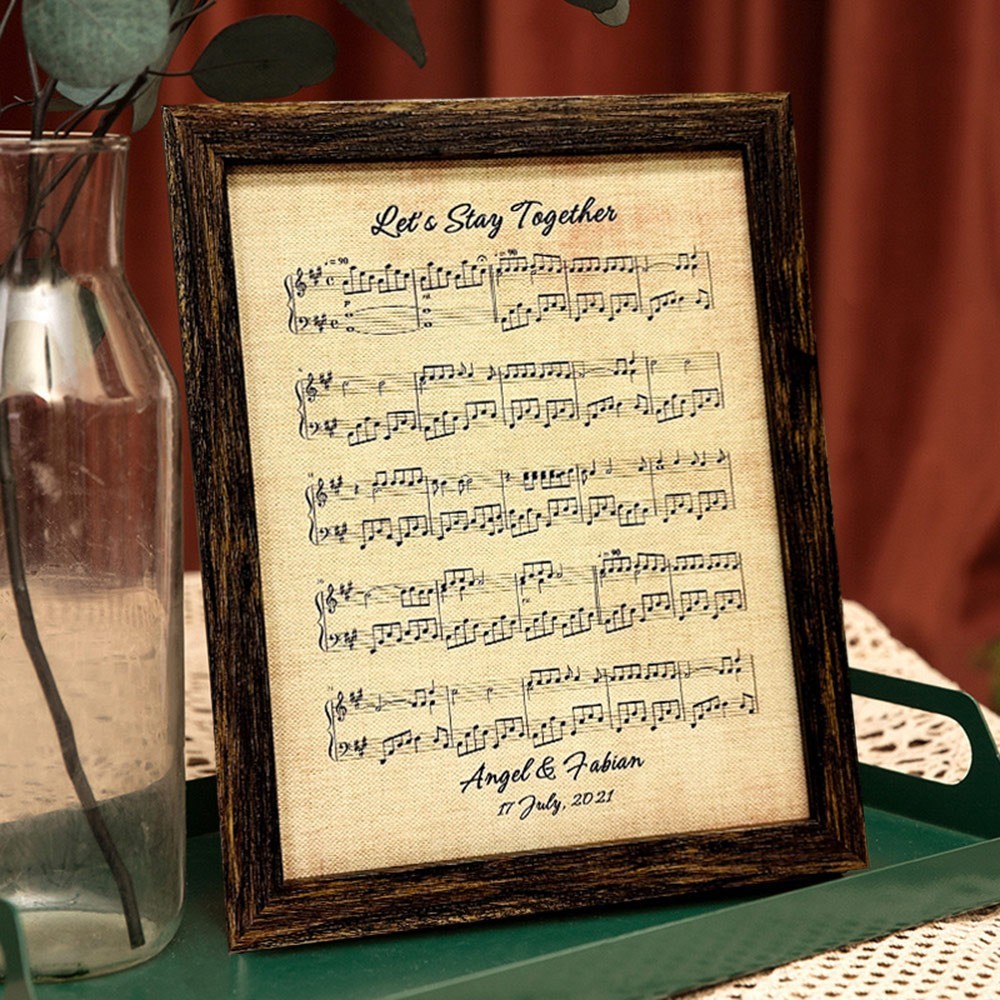 Let's Stay Together
♩ = 90
♩ = 90
♩ = 90
Angel & Fabian
17 July, 2021